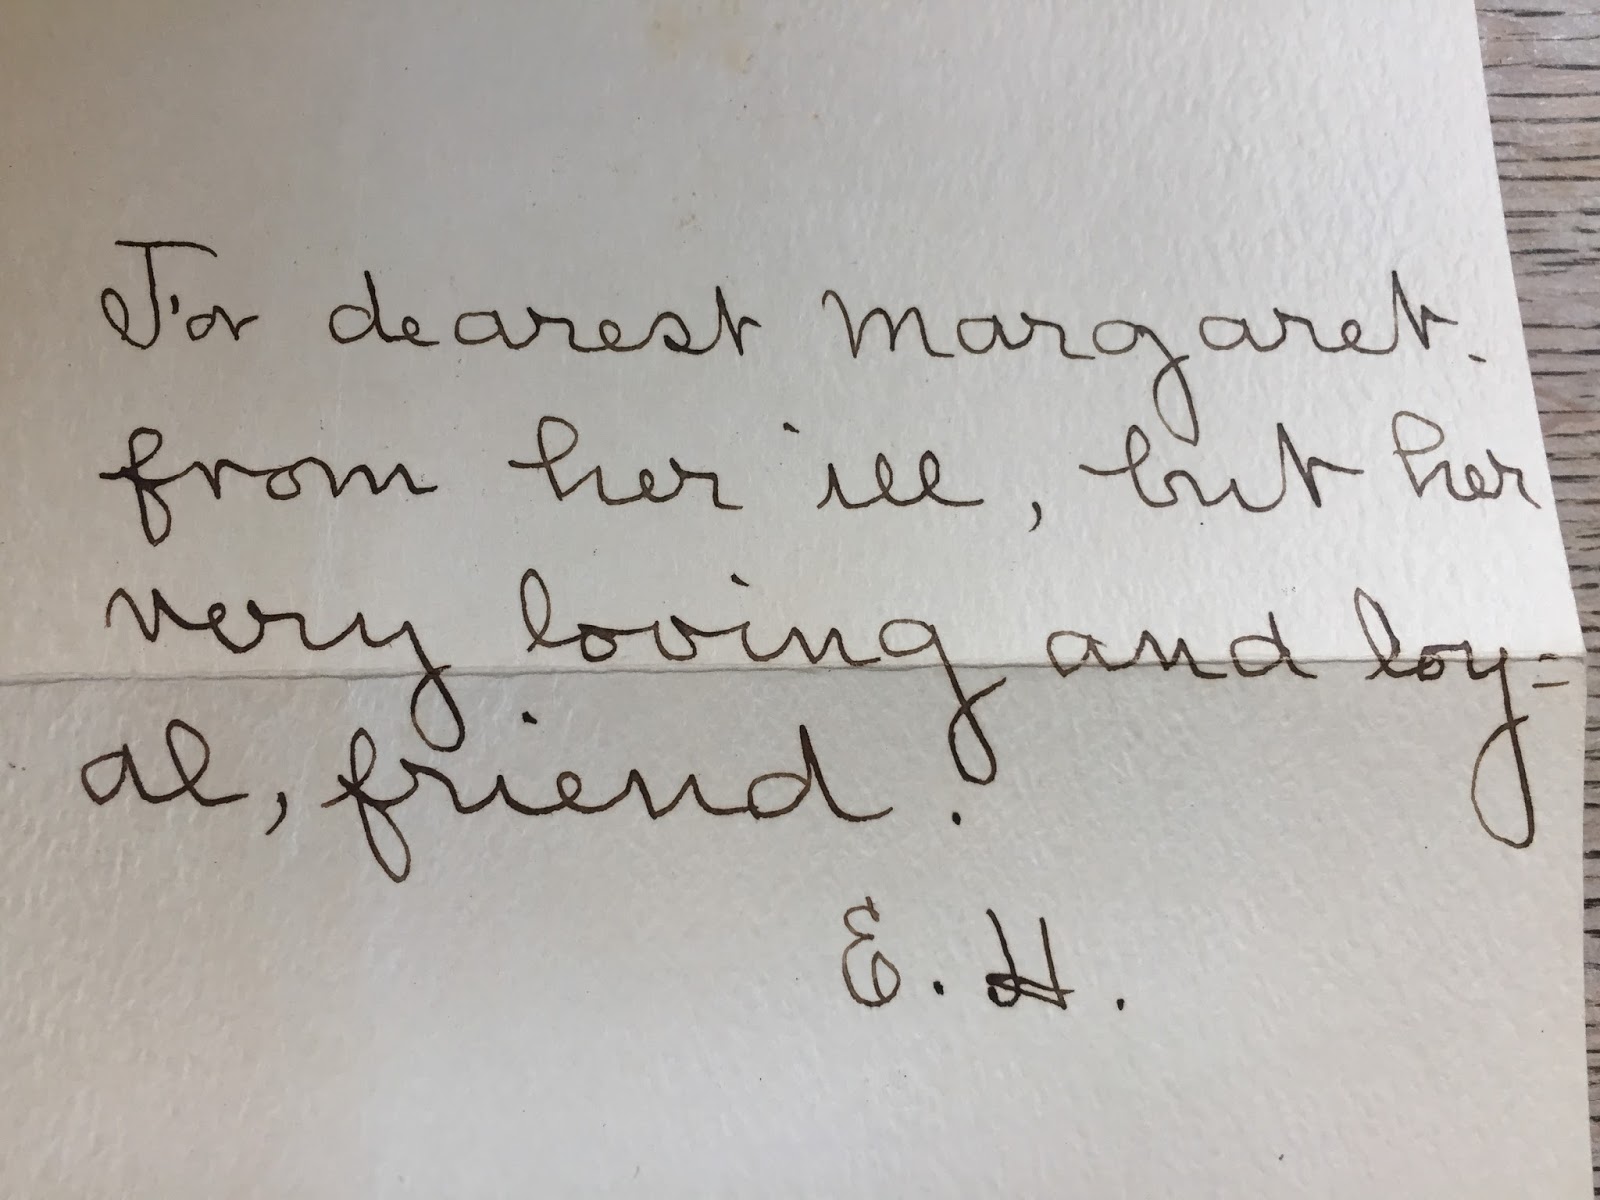 For dearest Margaret.
from her ill, but her
very loving and loy=
al, friend.
E. H.